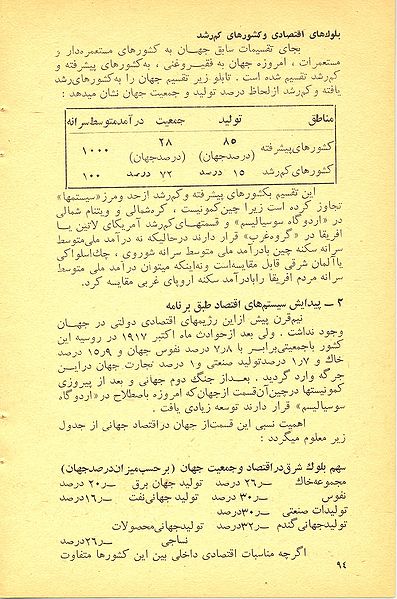 بلوك‌های اقتصادی و کشورهای کم‌رشد
بجای تقسیمات سابق جهان به کشورهای مستعمره‌دار و
مستعمرات ، امروزه جهان به فقیر و غنی ، به‌کشورهای پیشرفته و
کم‌رشد تقسیم شده است . تابلو زیر تقسیم جهان را به‌کشورهای رشد
یافته و کم‌رشد ازلحاظ درصد تولید و جمعیت جهان نشان میدهد :
مناطق تولید جمعیت درآمدمتوسط‌سرانه
کشورهای‌پیشرفته ۸۵ (درصدجهان) ۲۸ (درصدجهان) ۱۰۰۰
کشورهای‌کم‌رشد ۱۵ درصد ۷۲ درصد ۱۰۰
این تقسیم بکشورهای پیشرفته و کم‌رشد ازحد ومرز«سیستمها»
تجاوز کرده است زیرا چین‌کمونیست ، کره‌شمالی و ویتنام شمالی
در «اردوگاه سوسیالیسم» و قسمتهای‌کم‌رشد آمریکای لاتین یا
افریقا در «گروه‌غرب» قرار دارند درحالیکه نه درآمد ملی‌متوسط
سرانه سکنه چین بادرآمد ملی متوسط سرانه شوروی ، چك‌اسلواکی
یاآلمان شرقی قابل مقایسه‌است ونه‌اینکه میتوان درآمد ملی متوسط
سرانه مردم افریقا رابادرآمد سکنه اروپای غربی مقایسه کرد.
۲ ــ پیدایش سیستم‌های اقتصاد طبق برنامه
نیم‌قرن پیش ازاین رژیمهای اقتصادی دولتی در جهان
وجود نداشت . ولی بعد ازحوادث ماه اکتبر ۱۹۱۷ در روسیه این
کشور باجمعیتی‌برابر با ۷٫۸ درصد نفوس جهان و ۱۵٫۹ درصد
خاك و ۱٫۷ درصدتولید صنعتی و۱ درصد تجارت جهان دراین
جرگه وارد گردید . بعداز جنگ دوم جهانی و بعد از پیروزی
کمونیستها درچین‌آن‌قسمت ازجهان‌که امروزه باصطلاح در«اردوگاه
سوسیالیسم» قرار دارند توسعه زیادی یافت .
اهمیت نسبی این قسمت‌از جهان دراقتصاد جهانی از جدول
زیر معلوم میگردد :
سهم بلوك شرق‌در اقتصاد وجمعیت جهان (برحسب‌میزان‌درصدجهان)
مجموعه‌خاك ــر۲۶ درصد تولید جهان برق ــر۲۰ درصد
نفوس ــر۳۰ درصد تولید جهانی‌نفت ــر۱۶درصد
تولیدات صنعتی ــر۳۰درصد
تولیدجهانی‌گندم ــر۳۲درصد تولیدجهانی‌محصولات
نساجی ــر۲۶درصد
اگرچه مناسبات اقتصادی داخلی بین این کشورها متفاوت
۹٤